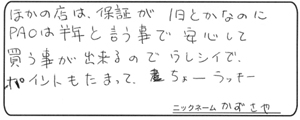 ほかの店は、保証が 1日とかなのに
PAOは半年と言う事で 安心して
買う事が出来るので うレシイで、
ポイントもたまって、ちょーラッキー
ニックネーム かずさや